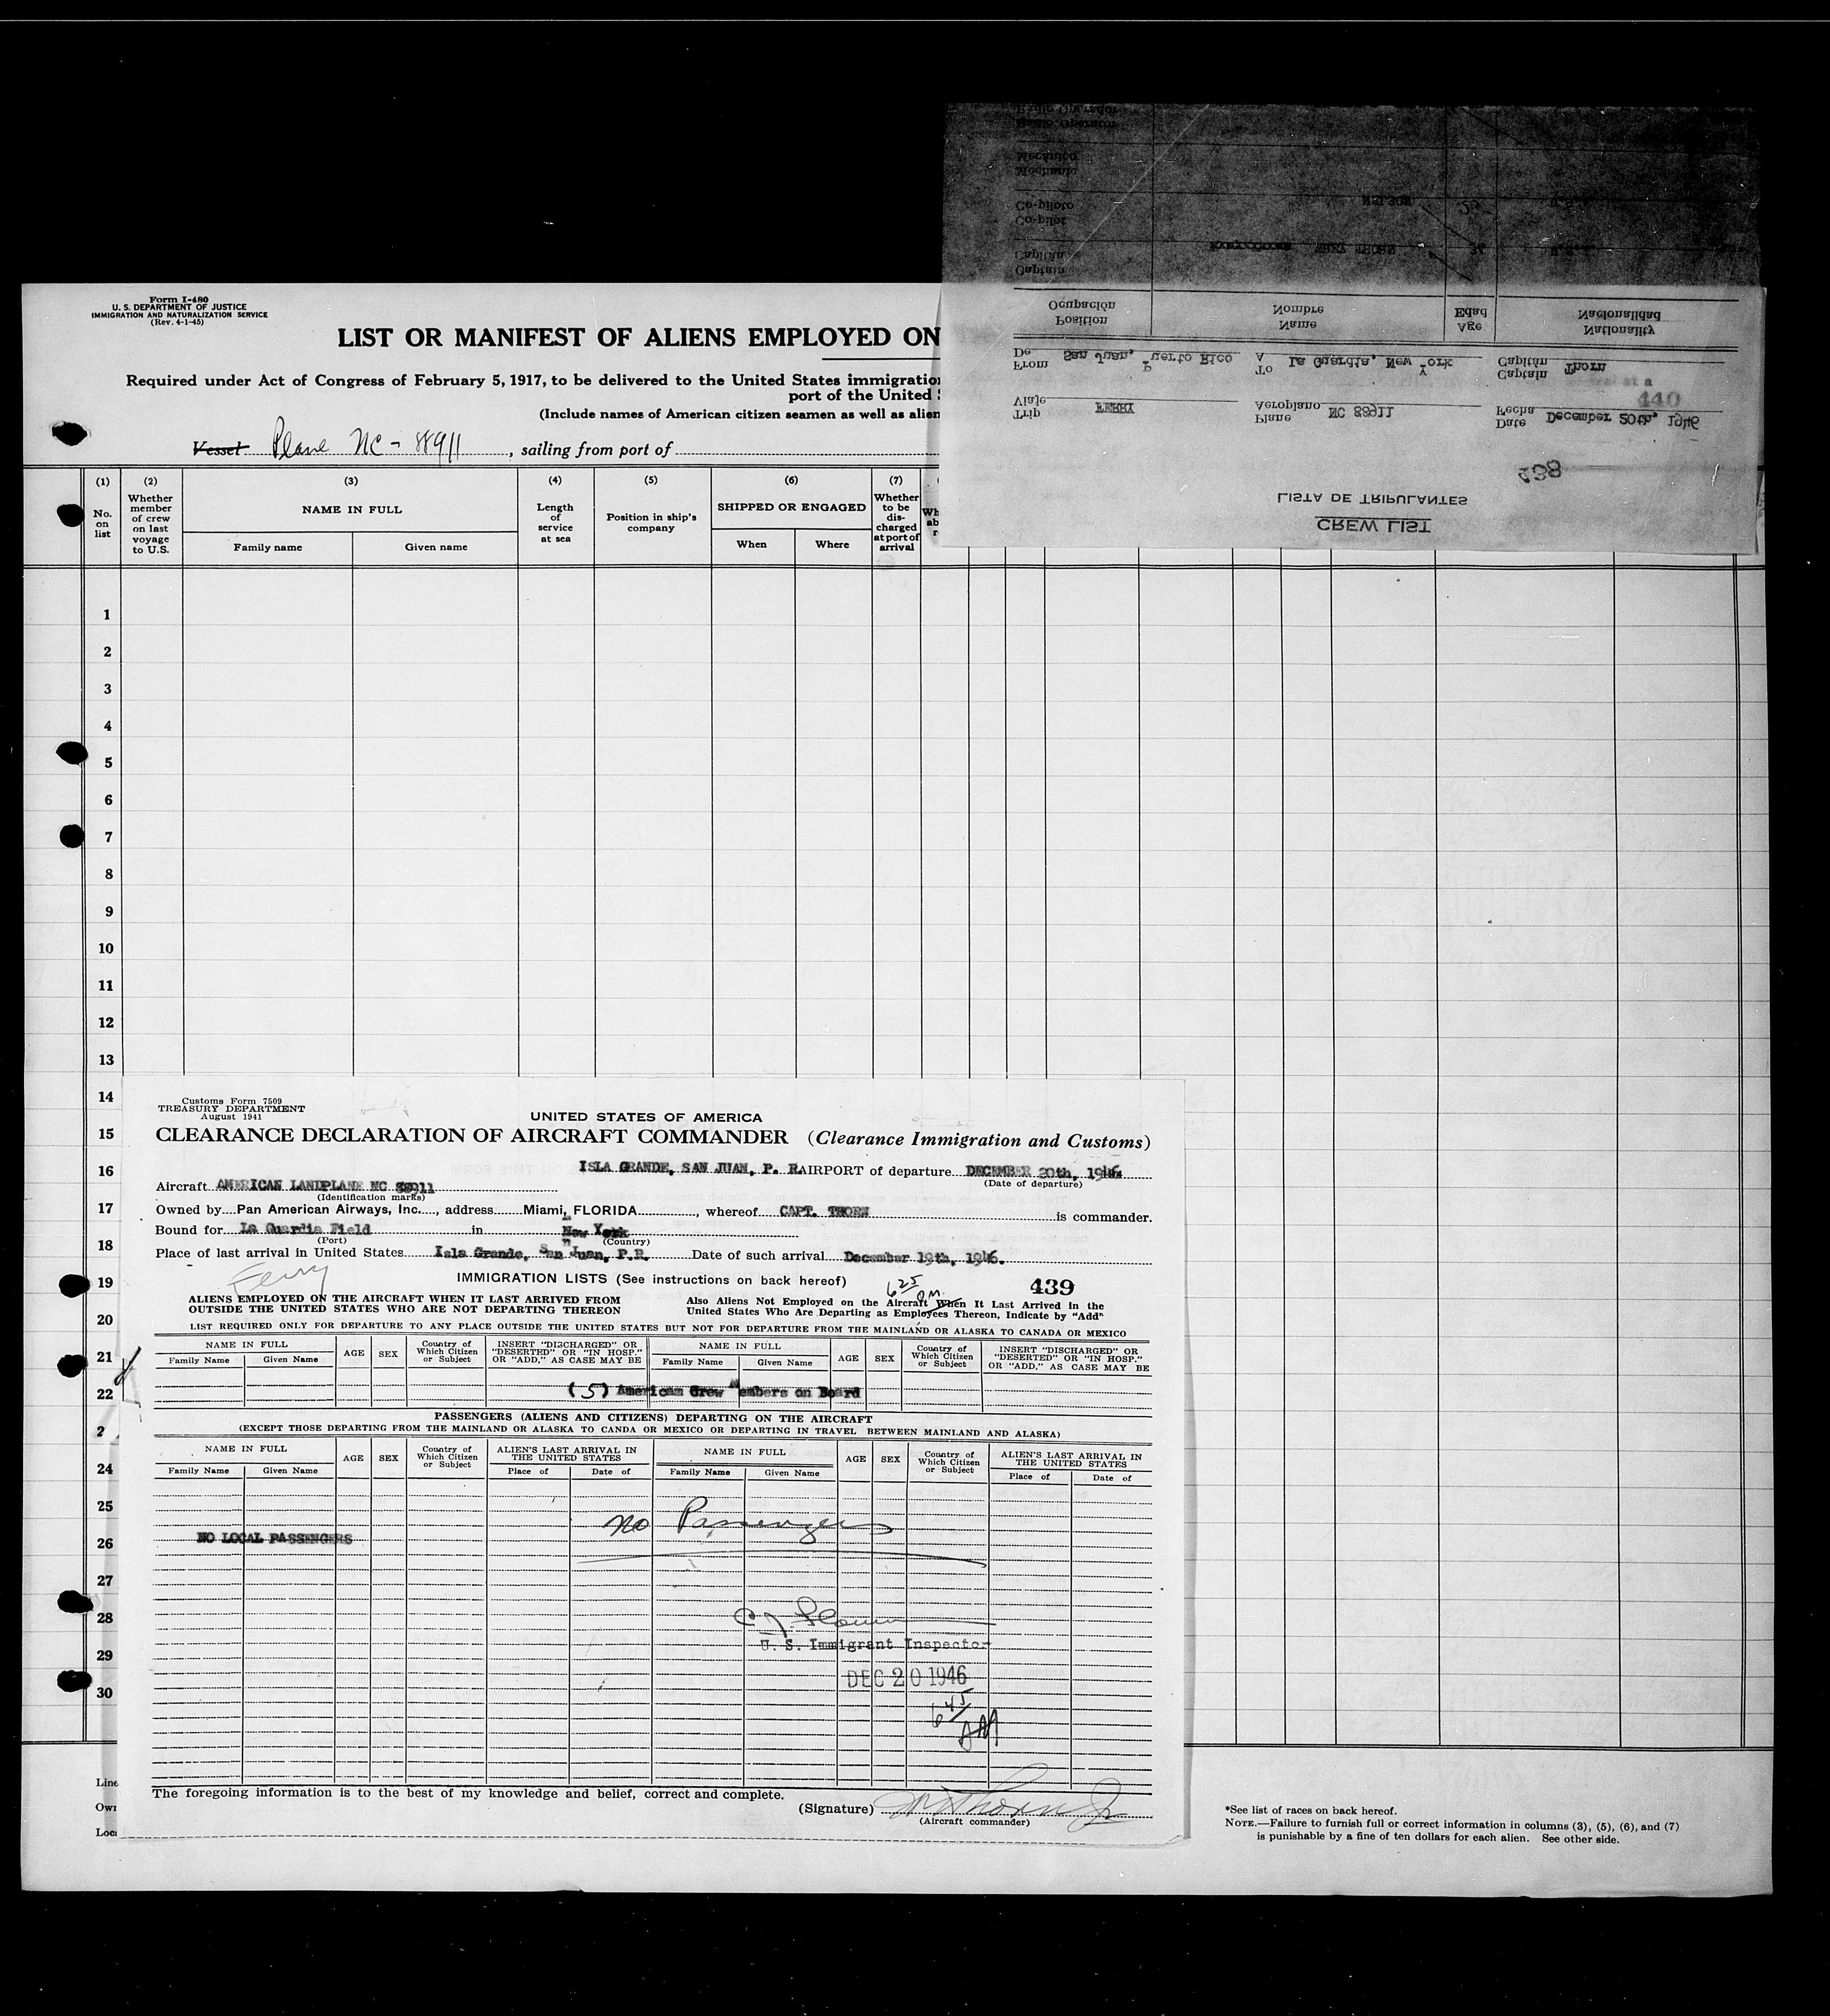 Form I-480
U. S. DEPARTMENT OF JUSTICE
IMMIGRATION AND NATURALIZATION SERVICE
(Rev. 4-1-45)
LIST OR MANIFEST OF ALIENS EMPLOYED ON
Required under Act of Congress of February 5, 1917, to be delivered to the United States
port of the United
(Include names of American citizen seamen as well as
Vessel Plane NC - 88911, sailing from port of
(1) (2) (3) (4) (5) (6) (7)
No. on list
Whether member of crew on last voyage to U.S.
NAME IN FULL
Family name Given name
Length of service at sea
Position in ship's company
SHIPPED OR ENGAGED
When Where
Whether to be discharged at port of arrival
CREW LIST
LISTA DE TRIPULANTES
438
Trip FERRY Plane NC 88911 Date December 20th, 1946
Viaje Aeroplano Fecha
440
From San Juan, Puerto Rico To La Guardia, New York Captain Thorn
De A Capitán
Position Name Age Nationality
Ocupación Nombre Edad Nacionalidad
Captain
Capitán THORN
Co-pilot
Co-piloto NELSON
Mechanic
Mecánico
Radio Operator
1
2
3
4
5
6
7
8
9
10
11
12
13
14
15
16
17
18
19
20
21
22
2
24
25
26
27
28
29
30
Customs Form 7509
TREASURY DEPARTMENT
August 1941
UNITED STATES OF AMERICA
CLEARANCE DECLARATION OF AIRCRAFT COMMANDER (Clearance Immigration and Customs)
ISLA GRANDE, SAN JUAN, P. R. AIRPORT of departure DECEMBER 20th, 1946
(Date of departure)
Aircraft AMERICAN LANDPLANE NC 88911
(Identification marks)
Owned by Pan American Airways, Inc., address Miami, FLORIDA, whereof CAPT. THORN is commander.
Bound for La Guardia Field in New York
(Port) (Country)
Place of last arrival in United States Isla Grande, San Juan, P.R. Date of such arrival December 19th, 1946.
Ferry
IMMIGRATION LISTS (See instructions on back hereof) 6 25 PM. 439
ALIENS EMPLOYED ON THE AIRCRAFT WHEN IT LAST ARRIVED FROM
OUTSIDE THE UNITED STATES WHO ARE NOT DEPARTING THEREON
Also Aliens Not Employed on the Aircraft When It Last Arrived in the
United States Who Are Departing as Employees Thereon, Indicate by "Add"
LIST REQUIRED ONLY FOR DEPARTURE TO ANY PLACE OUTSIDE THE UNITED STATES BUT NOT FOR DEPARTURE FROM THE MAINLAND OR ALASKA TO CANADA OR MEXICO
NAME IN FULL AGE SEX Country of Which Citizen or Subject INSERT "DISCHARGED" OR "DESERTED" OR "IN HOSP." OR "ADD," AS CASE MAY BE NAME IN FULL AGE SEX Country of Which Citizen or Subject INSERT "DISCHARGED" OR "DESERTED" OR "IN HOSP." OR "ADD," AS CASE MAY BE
Family Name Given Name Family Name Given Name
(5) American Crew Members on Board
PASSENGERS (ALIENS AND CITIZENS) DEPARTING ON THE AIRCRAFT
(EXCEPT THOSE DEPARTING FROM THE MAINLAND OR ALASKA TO CANDA OR MEXICO OR DEPARTING IN TRAVEL BETWEEN MAINLAND AND ALASKA)
NAME IN FULL AGE SEX Country of Which Citizen or Subject ALIEN'S LAST ARRIVAL IN THE UNITED STATES NAME IN FULL AGE SEX Country of Which Citizen or Subject ALIEN'S LAST ARRIVAL IN THE UNITED STATES
Family Name Given Name Place of Date of Family Name Given Name Place of Date of
No Passengers
NO LOCAL PASSENGERS
U. S. Immigrant Inspector
DEC 20 1946
6 45
The foregoing information is to the best of my knowledge and belief, correct and complete.
(Signature)
(Aircraft commander)
Line
*See list of races on back hereof.
NOTE.—Failure to furnish full or correct information in columns (3), (5), (6), and (7)
is punishable by a fine of ten dollars for each alien. See other side.